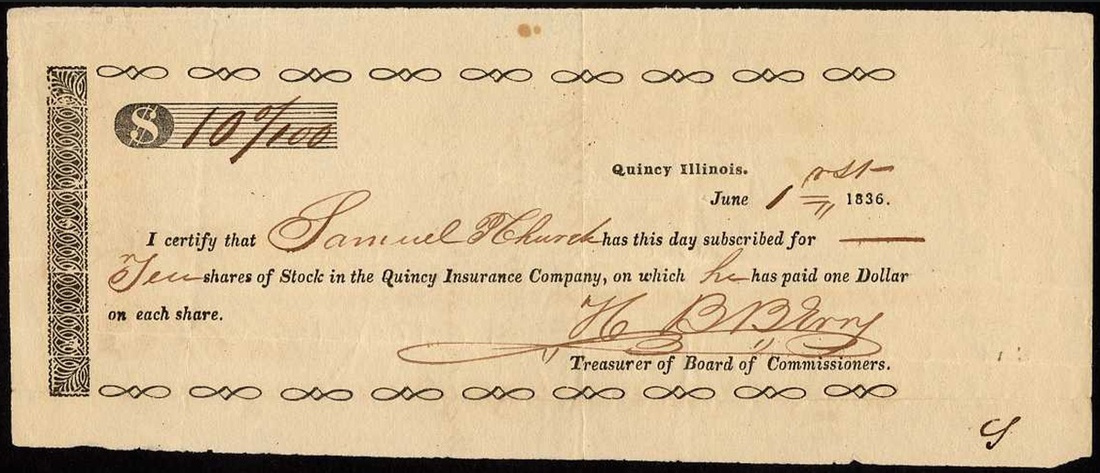 $ 10 0/100
Quincy Illinois.
June 1 rst 1836.
I certify that Samuel Church has this day subscribed for
Ten shares of Stock in the Quincy Insurance Company, on which he has paid one Dollar
on each share.
H B Berry
Treasurer of Board of Commissioners.